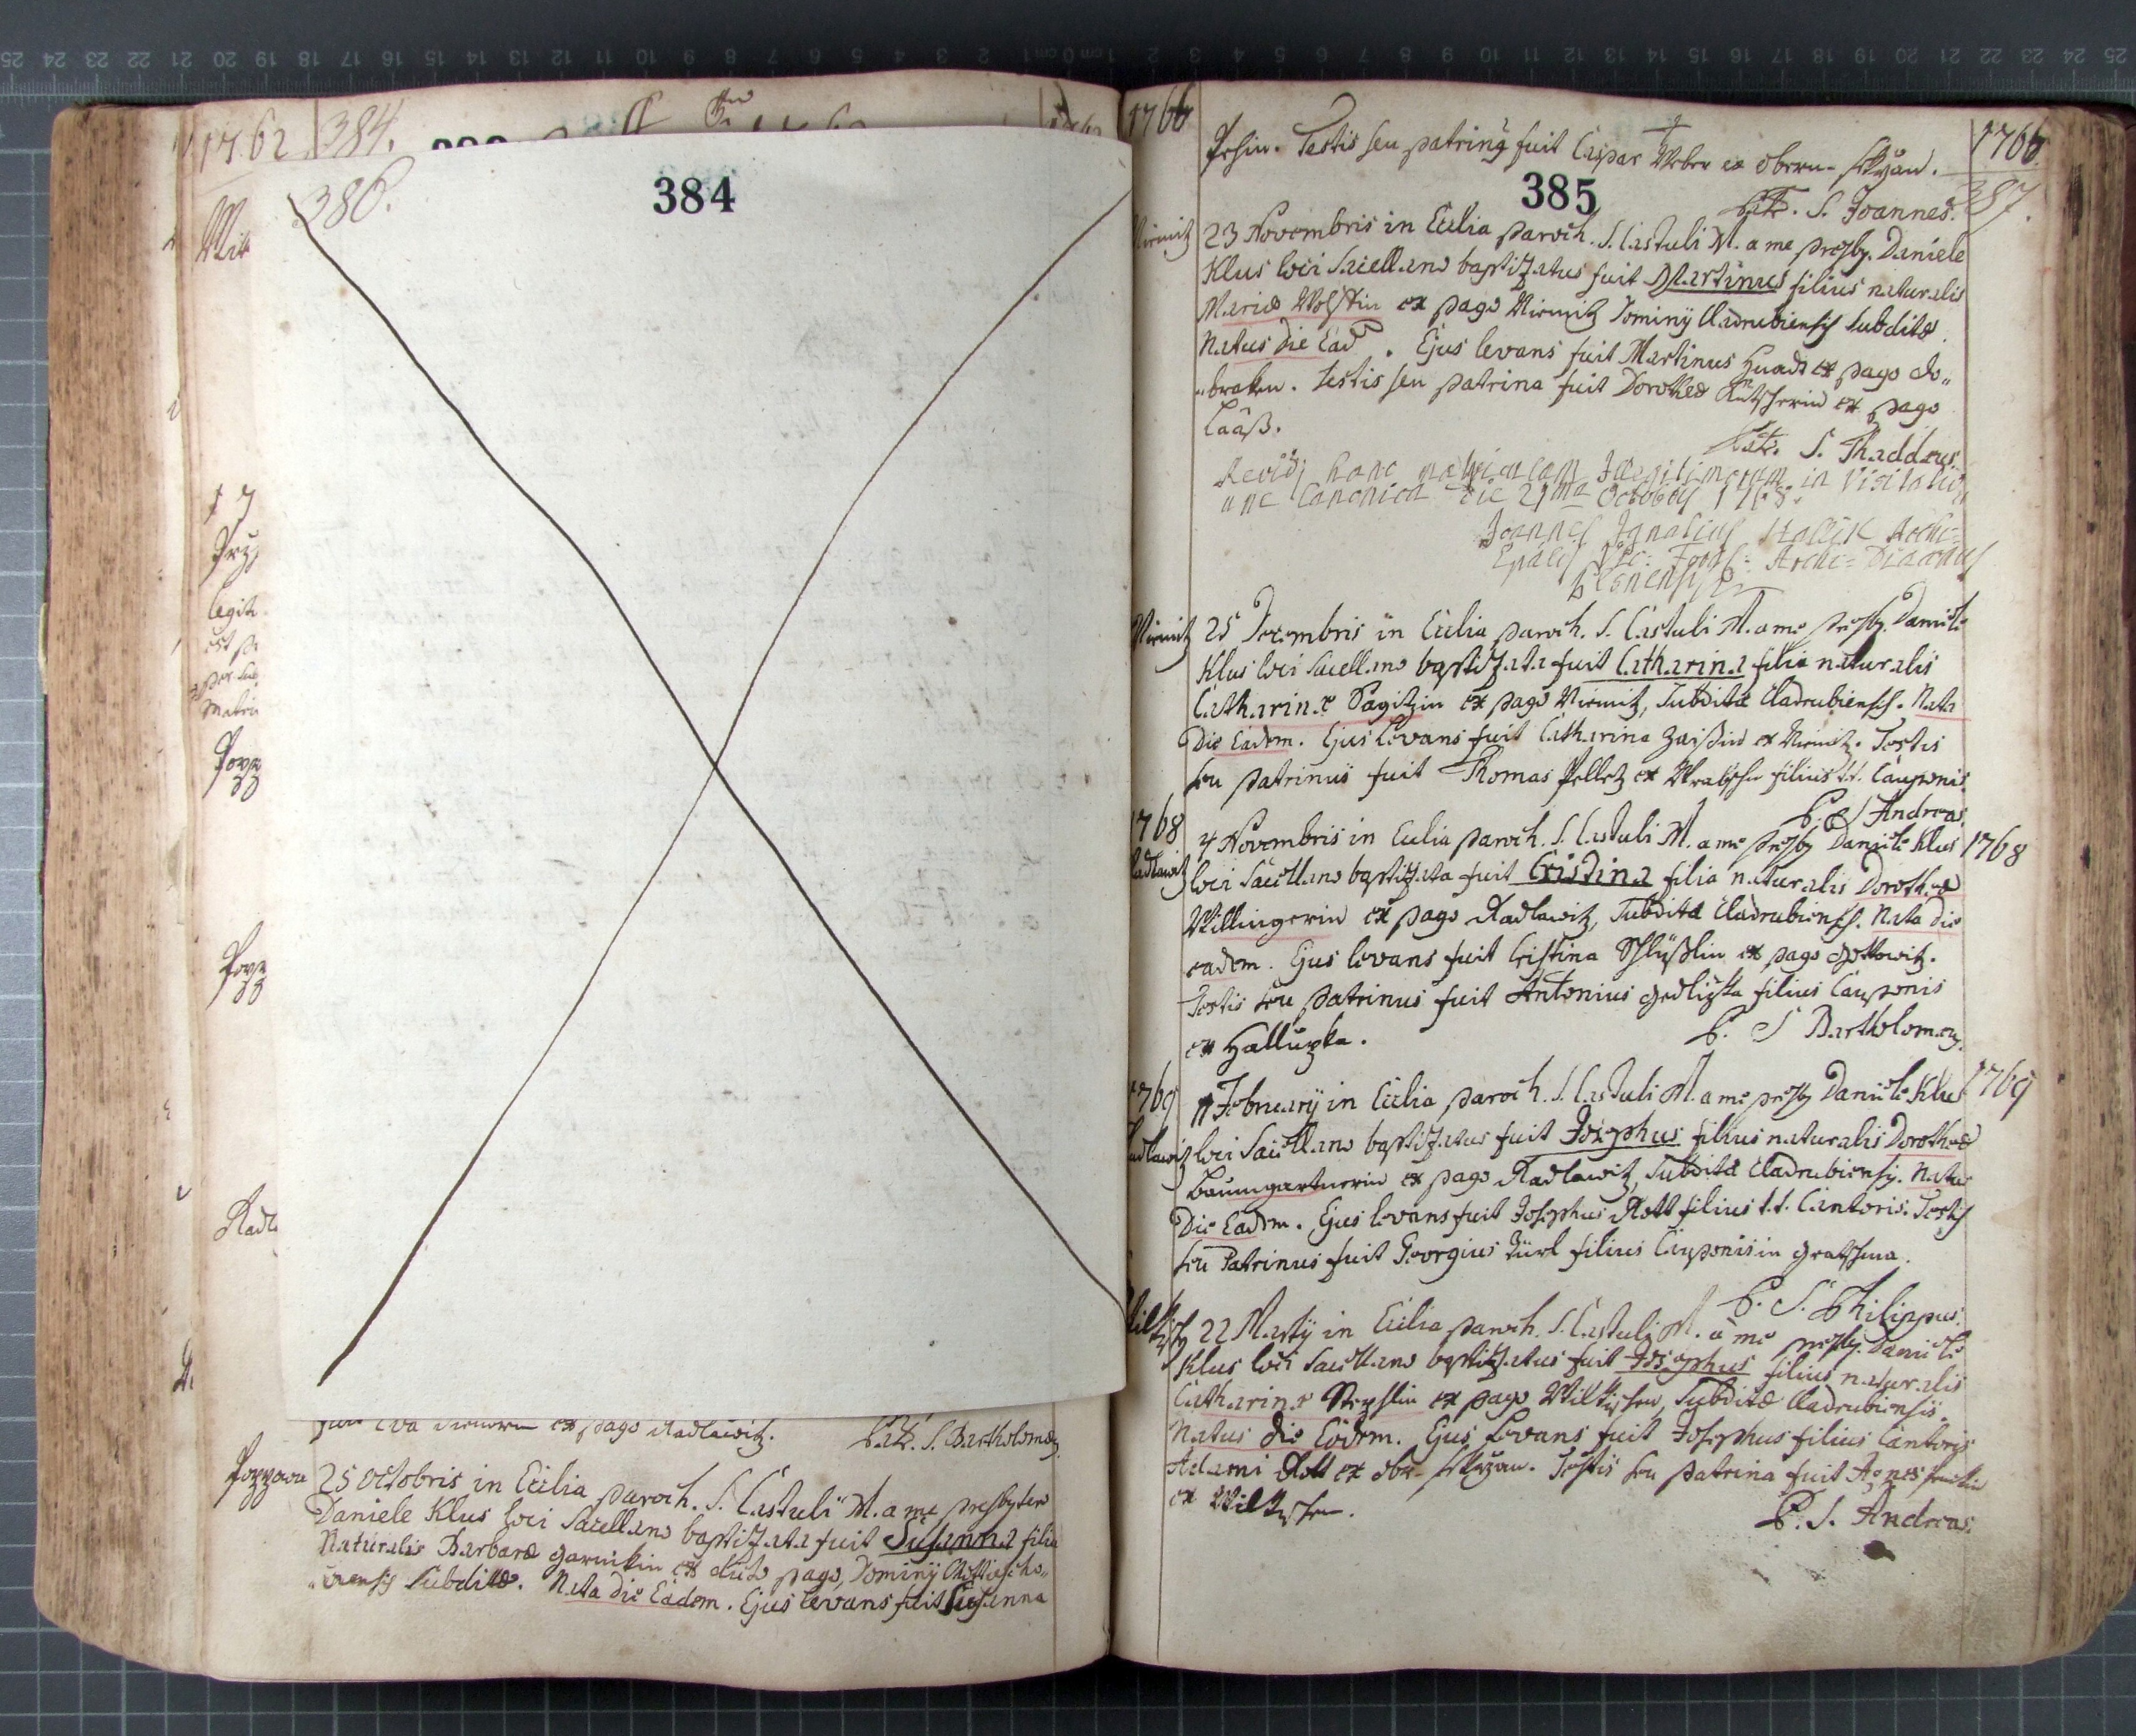 1762 384.
384
386.
Mir
Przy
legit
Pozz
Pozz
Radl
fuit Eva ex pago Radlawitz. Patr. S. Bartholomæg
Pozzowa 25 Octobris in Ecclia paroch. S. Castuli M. a me presbytero
Daniele Klus loci Sacellano baptizata fuit Susanna filia
Naturalis Barbaræ Garnikin ex dicto pago, Dominÿ
Subditæ. Nata die Eadem. Ejus levans fuit Susanna
1766 1766
Testis seu patring fuit Caspar Weber ex obern-
385
387.
Patr. S. Joannes.
Nirmitz 23 Novembris in Ecclia paroch. S. Castuli M. a me presby. Daniele
Klus loci Sacellano baptizatus fuit Martinus filius naturalis
Mariæ Wolftin ex pago Nirmitz Dominÿ Cladrubiensis Subditæ.
Natus die Ead. Ejus levans fuit Martinus ex pago do„
„braken. Testis seu patrina fuit Dorothea ex pago
Laäß.
Patr. S. Thaddæus.
Revidi hanc matriculam Illegitimorum in Visitatio„
one Canonica die 21ma Octobris 1768.
Joannes Ignatius Archi=
Archi=Diaconus
Plsnensis
Nirmitz 25 Decembris in Ecclia paroch. S. Castuli M. a me presby. Daniele
Klus loci Sacellano baptizata fuit Catharina filia naturalis
Catharinæ Pagitzin ex pago Nirmitz, Subditæ Cladrubiensis. Nata
Die Eadem. Ejus Levans fuit Catharina Zaißin ex Nirmitz. Testis
seu patrinus fuit Thomas Pelletz ex filius t.t. Cauponis.
P. S. Andreas.
1768 4 Novembris in Ecclia paroch. S. Castuli M. a me presby Daniele Klus 1768
Radlawitz loci Sacellano baptizata fuit Cristina filia naturalis Dorotheæ
Willingerin ex pago Radlawitz, Subditæ Cladrubiensis. Nata die
eadem. Ejus levans fuit Cristina Schlüßlin ex pago
Testis seu patrinus fuit Antonius filius Cauponis
ex Halluzka.
P. S Bartholomæg.
1769 11 Februarÿ in Ecclia paroch. S. Castuli M. a me presby Daniele Klus 1769
Radlawitz loci Sacellano baptizatus fuit Josephus filius naturalis Dorotheæ
Baumgartnerin ex pago Radlawitz, Subditæ Cladrubiensis. Natus
Die Eadem. Ejus levans fuit Josephus Rott filius t.t. Cantoris. Testis
seu Patrinus fuit Georgius Zürl filius Cauponis in
P. S. Philippus.
22 Martÿ in Ecclia paroch. S. Castuli M. a me presby. Daniele
Klus loci Sacellano baptizatus fuit Josephus filius naturalis
Catharinæ Stepslin ex pago Wilkischen, Subditæ Cladrubiensis.
Natus die Eodem. Ejus Levans fuit Josephus filius Cantoris
Adami Rott ex Testis seu patrina fuit Agnes
ex Wilkischen.
P. S. Andreas.